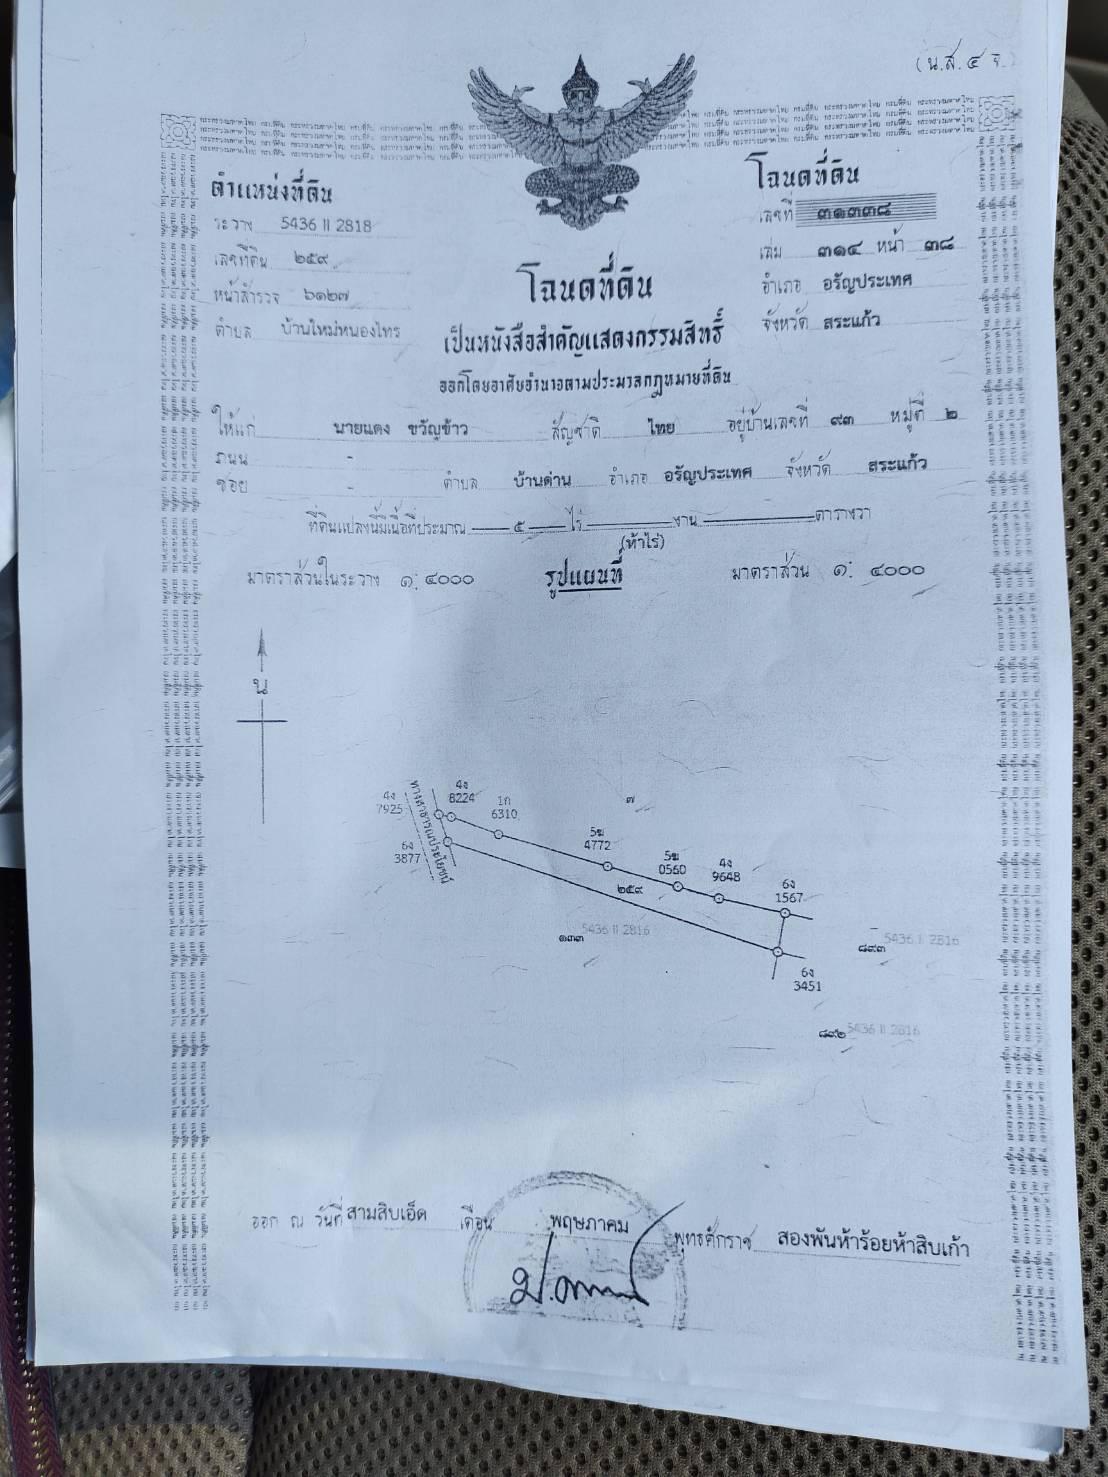 (น.ส. ๔ จ.)
ตำแหน่งที่ดิน
ระวาง 5436 II 2818
เลขที่ดิน ๒๕๙
หน้าสำรวจ ๖๑๒๗
ตำบล บ้านใหม่หนองไทร
โฉนดที่ดิน
เลขที่ ๓๑๓๓๘
เล่ม ๓๑๔ หน้า ๓๘
อำเภอ อรัญประเทศ
จังหวัด สระแก้ว
โฉนดที่ดิน
เป็นหนังสือสำคัญแสดงกรรมสิทธิ์
ออกโดยอาศัยอำนาจตามประมวลกฎหมายที่ดิน
ให้แก่ นายแดง ขวัญข้าว สัญชาติ ไทย อยู่บ้านเลขที่ ๙๓ หมู่ที่ ๒
ถนน -
ซอย - ตำบล บ้านด่าน อำเภอ อรัญประเทศ จังหวัด สระแก้ว
ที่ดินแปลงนี้มีเนื้อที่ประมาณ ๕ ไร่ งาน ตารางวา
(ห้าไร่)
มาตราส่วนในระวาง ๑: ๔๐๐๐ รูปแผนที่ มาตราส่วน ๑: ๔๐๐๐
น
4ง
7925
4ง
8224
1ก
6310
๗
6ง
3877
ทางสาธารณประโยชน์
5ฆ
4772
5ฆ
0560
4ง
9648
6ง
1567
๒๕๙
๑๓๓ 5436 II 2816
๘๙๓ 5436 II 2816
6ง
3451
๘๙๒ 5436 II 2816
ออก ณ วันที่ สามสิบเอ็ด เดือน พฤษภาคม พุทธศักราช สองพันห้าร้อยห้าสิบเก้า